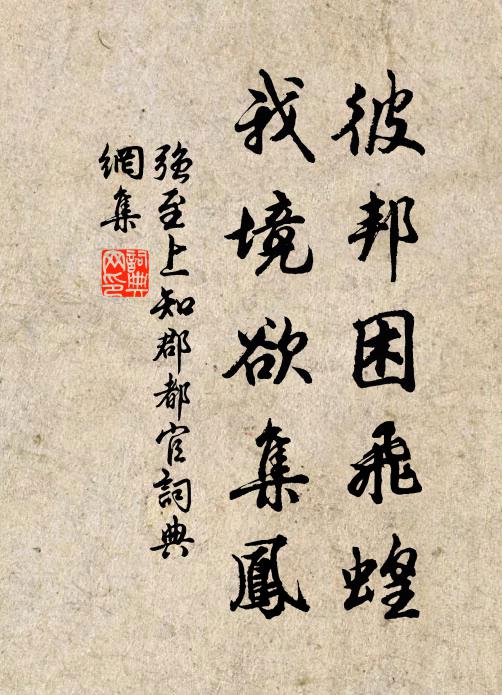 彼邦困飛蝗
我境欲集鳳
強至上知郡都官詞典
網集
詞典
网印